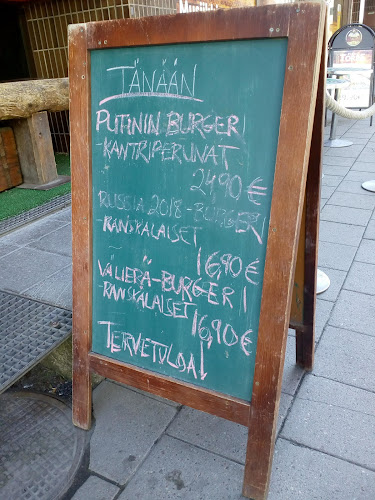 TÄNÄÄN
PUTININ BURGERI
-KANTRIPERUNAT
24,90 €
RUSSIA 2018 -BURGERI
-RANSKALAISET
16,90 €
VÄLIERÄ-BURGERI
-RANSKALAISET
16,90 €
TERVETULOA!